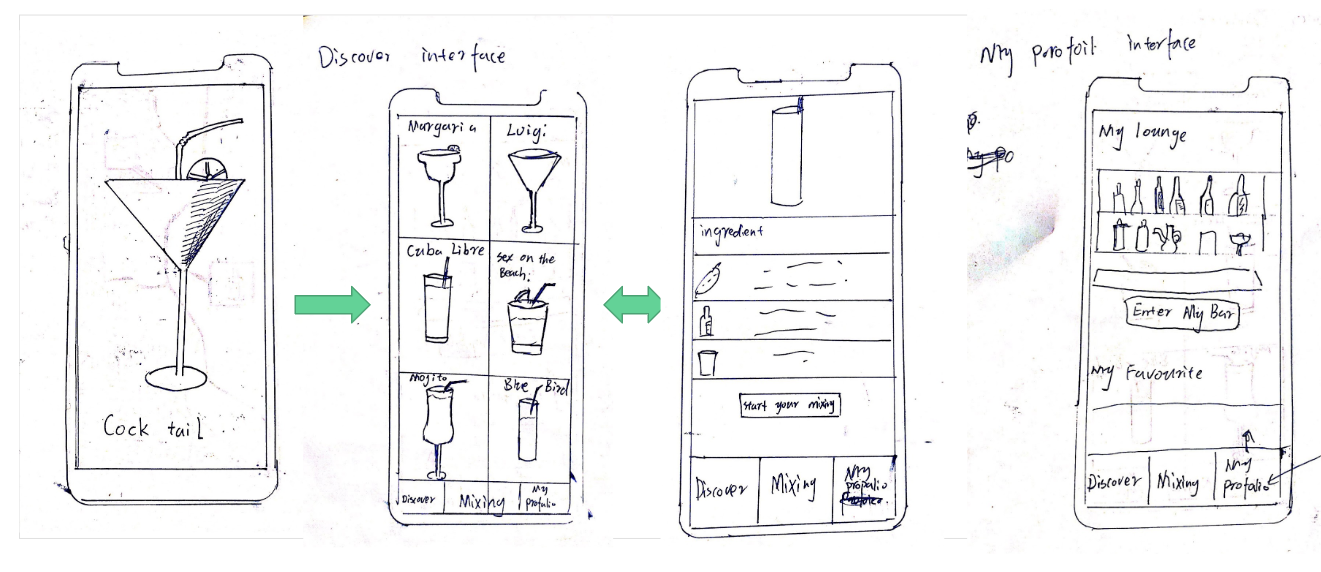 Cock tail
Discover interface
Margaria
Luigi
Cuba Libre
Sex on the
Beach.
Mojito
Blue Bird
Discover
Mixing
My
profalio
ingredient
start your mixing
Discover
Mixing
My
propalio
My porofoil interface
My lounge
Enter My Bar
My Favourite
Discover
Mixing
My
profalio